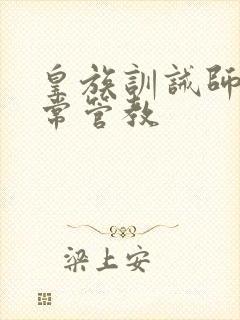 皇族訓誡師
常管教
梁上安